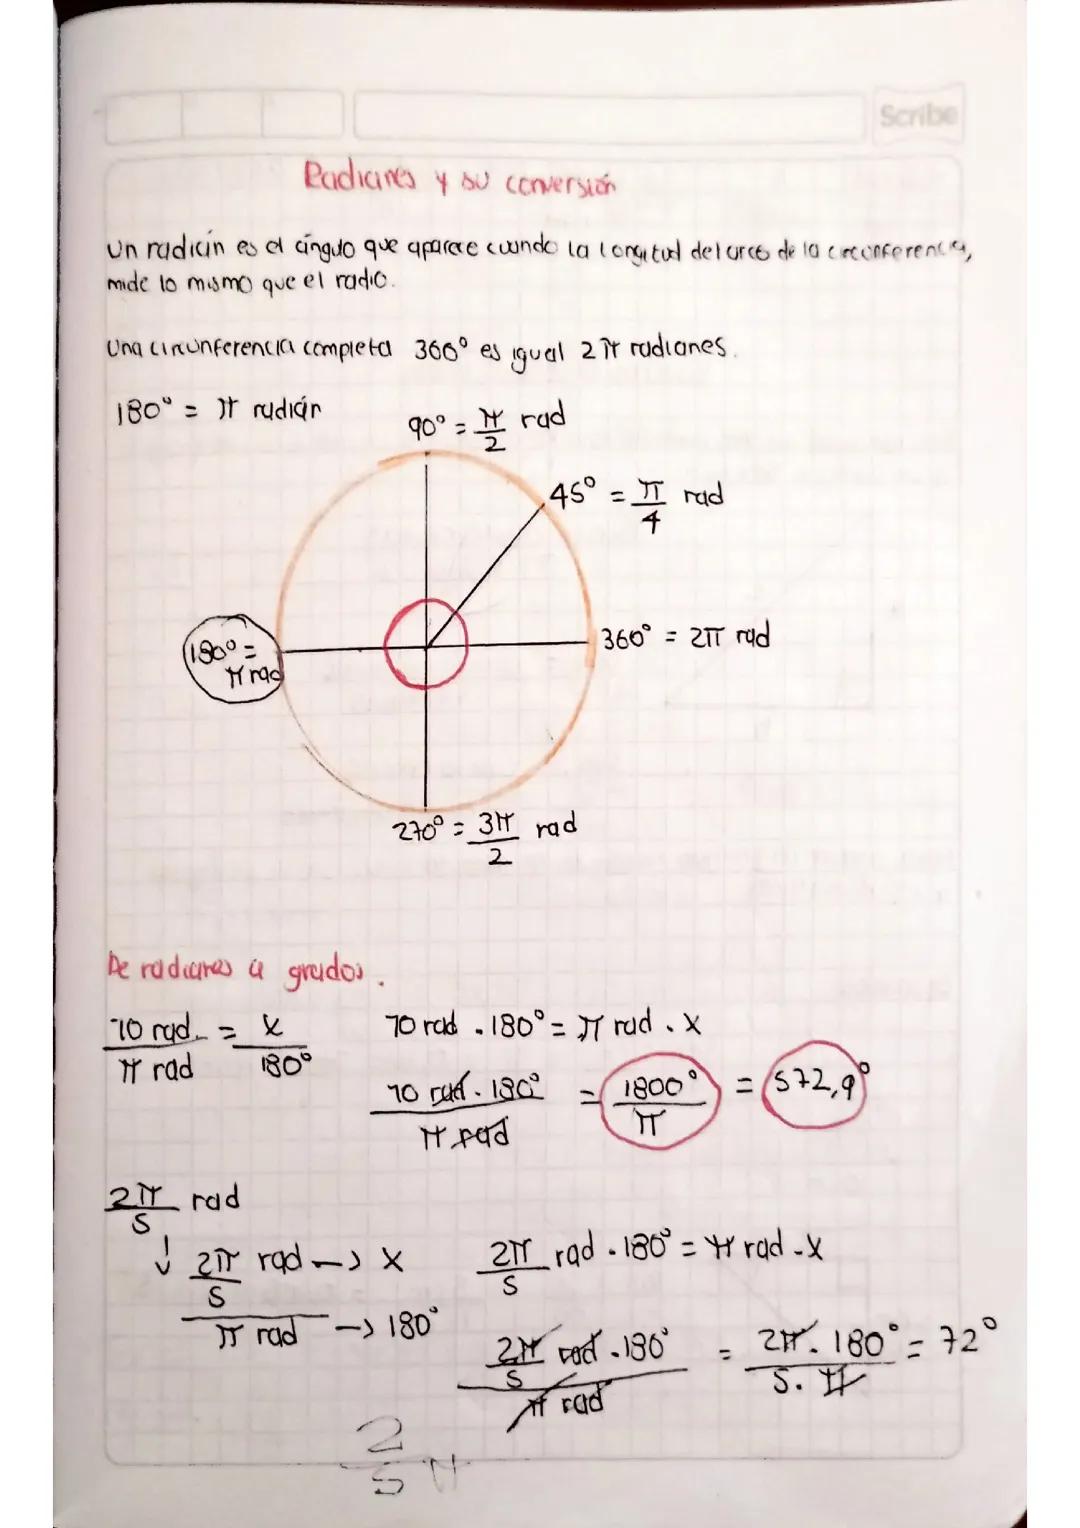 Scribe
Radianes y su conversión
Un radián es el ángulo que aparece cuando la longitud del arco de la circunferencia,
mide lo mismo que el radio.
Una circunferencia completa 360° es igual 2π radianes.
180° = π radián
90° = π/2 rad
45° = π/4 rad
180° =
π rad
360° = 2π rad
270° = 3π/2 rad
De radianes a grados.
10 rad / π rad = x / 180°
10 rad . 180° = π rad . x
10 rad . 180° / π rad = 1800° / π = 572,9°
2π/5 rad
↓ 2π/5 rad → x
π rad → 180°
2π/5 rad . 180° = π rad . x
2π/5 rad . 180° / π rad = 2π . 180° / 5 . π = 72°
2/5 π